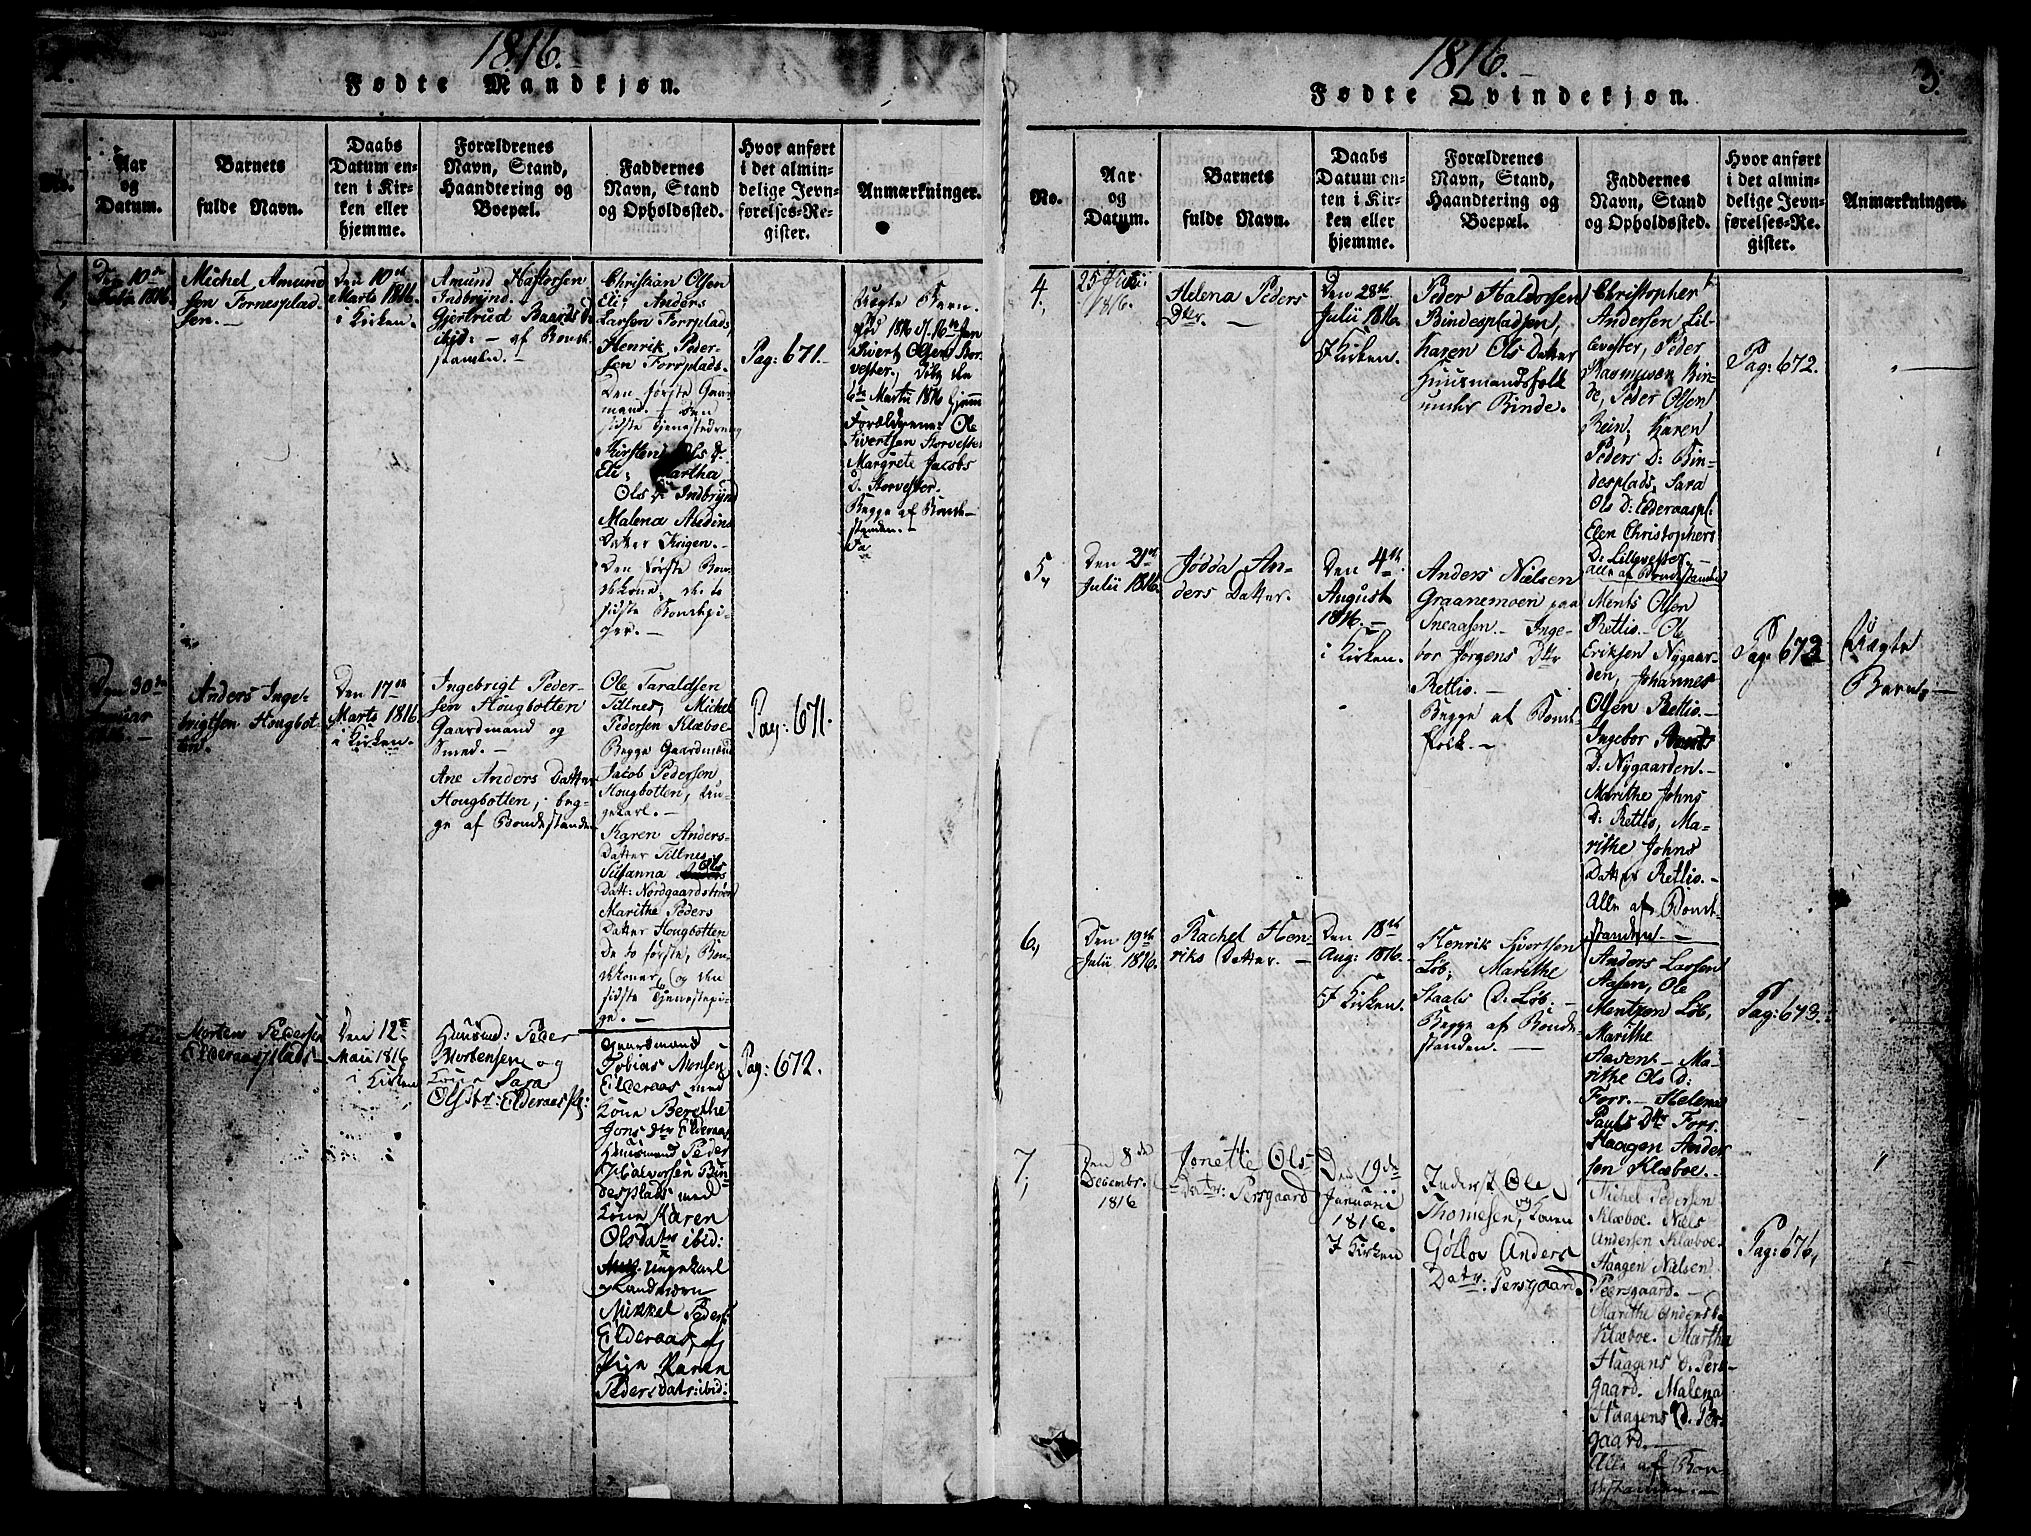 1816.
Fødte Mandkjøn.
No.
Aar
og
Datum.
Barnets
fulde Navn.
Daabs
Datum en-
ten i Kir-
ken eller
hjemme.
Forældrenes
Navn, Stand,
Haandtering og
Boepæl.
Faddernes
Navn, Stand
og Opholdssted.
Hvor anført
i det almin-
delige Jevn-
førelses-Re-
gister.
Anmærkninger.
1,
Den 10de
1816.
Michel Amund
sen Fornesplad-
sen. —
Den 10de
Marts 1816.
i Kirken.
Amund Hastorsen
Indbrÿnd.
Gjertrud Baards D
ibid: — af Bonde-
standen. —
Christian Olsen
Eli, Anders
Larsen Forrplads,
Henrik Peder-
sen Forrplads.
Den første Gaar
mand. — den
sidste Tjenestedreng
Kirsten Ols D.
Eli, Martha
Ols D Indbrÿnd
Malena
Datter Krigen. —
Den første Bon-
dekone, de to
sidste Bondepi-
ger. —
Pag: 671.
Uægte Barn.
fød 1816 d. 16de Jan
Sivert Olsen Stor-
vester, døbt den
Martii 1816 hjem
Forældrene: Ole
Sivertsen Storvester
Margrete Jacobs
D. Storvester.
Begge af Bonde-
standen. —
Den 30te
Januar
1816. —
Anders Inge-
brigtsen Hougbot-
ten.
Den 17de
Marts 1816.
i Kirken.
Ingebrigt Peder-
sen Hougbotten
Gaardmand og
Smed. —
Ane Anders Datter
Hougbotten, beg-
ge af Bondestanden
Ole Taraldsen
Tillnes, Michel
Pedersen Klæboe
Begge Gaardmænd
Jacob Pedersen
Hougbotten, Un-
gekarl. —
Karen Anders-
Datter Tillnes
Susanna Ols
Datt: Nordgaardstrøen
Marithe Peders
Datter Hougbotten
De to første, Bon-
dekoner, og den
sidste Tjenestepi-
ge. —
Pag: 671.
Morten Pedersen
Elderaasplads —
Den 12te
Maii 1816
i Kirken
Huusmd: Peder
Mortensen og
Kone Sara
Olsdtr: Elderaaspl:
Gaardmand
Tobias Monsen
Elderaas med
Kone Berethe
Jons dtr Elderaas,
Huusmand Peder
Halvorsen Bin-
desplads med
Kone Karen
Olsdatr ibid:
Ungekarl
Landværn
Mikkel Peders
Elderaas, og
Pige Karen
Pedersdatr: ibid:
Pag: 672.
1816. —
3.
Fødte Qvindekjøn.
No.
Aar
og
Datum.
Barnets
fulde Navn.
Daabs
Datum en-
ten i Kir-
ken eller
hjemme.
Forældrenes
Navn, Stand,
Haandtering og
Boepæl.
Faddernes
Navn, Stand
og Opholdssted.
Hvor anført
i det almin-
delige Jevn-
førelses-Re-
gister.
Anmærkninger.
4,
25
1816.
Helena Peders
Dttr. —
Den 28de
Julii 1816.
I Kirken.
Peder Haldorsen
Bindespladsen,
Karen Ols Datter
Huusmandsfolk
under Binde.
Christopher
Andersen Lil-
levester, Peder
Rasmusen Bin-
de, Peder Olsen
Rein, Karen
Peders D: Bin-
desplads, Sara
Ols D: Elderaaspl:
Elen Christophers
D: Lillevester. —
Alle af Bondestanden
Pag: 672.
5,
Den 21de
Julii 1816.
Jødda An-
ders Datter.
Den 4de
August
1816. —
i Kirken.
Anders Nielsen
Graanemoen paa
Sneaasen. — Inge-
bor Jørgens Dttr
Rettis. —
Begge af Bonde-
folk. —
Ments Olsen
Rettis. — Ole
Eriksen Nygaar-
den, Johannes
Olsen Rettis. —
Ingebor
D: Nygaarden. —
Marithe Johns
D: Rettis, Ma-
rithe Johns
Datter Rettis. —
Alle af Bonde-
standen. —
Pag: 673
Uægte
Barn. —
6,
Den 19de
Julii 1816.
Rachel Hen-
riks Datter. —
Den 18de
Aug: 1816.
I Kirken.
Henrik Sivertsen
Løb, Marithe
Staals D. Løb. —
Begge af Bonde-
standen. —
Anders Larsen
Aasen, Ole
Mentzen Løb,
Marithe
Aasen. — Ma-
rithe Ols D:
Forr. — Helena
Pauls Dttr Forr.
Haagen Ander
sen Klæboe. —
Pag: 673.
7,
Den 8de
Decembr.
1816
Jonette Ols-
Datr: Persgaard
Den 19de
Januarii
1816.
I Kirken
Inderst Ole
Thomesen, og Konen
Gølløv Anders
Datr: Persgaard.
Michel Pedersen
Klæboe. Niels
Andersen Klæboe.
Haagen Nielsen
Peersgaard. —
Marithe Anders D.
Klæboe. Martha
Haagens D. Pers-
gaard. Malena
Haagens D. Per-
gaard. —
Alle af Bon-
destanden. —
Pag: 676,